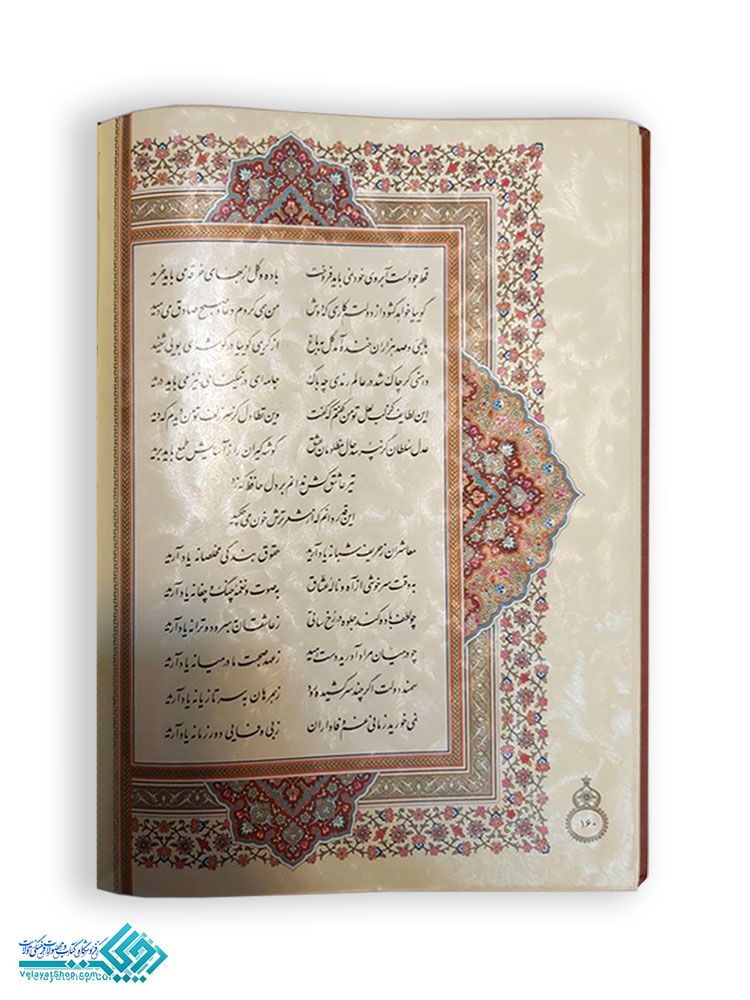 قحط جودست آبروی خود نمی باید فروخت باده و گل از بهای خرقه می باید خرید
گوییا خواهد گشود از دولتم کاری که دوش من همی کردم دعا و صبح صادق می دمید
با لبی و صد هزاران خنده آمد گل به باغ از کریمی گوییا در گوشه ای بویی شنید
دامنی گر چاک شد در عالم رندی چه باک جامه ای در نیکنامی نیز می باید درید
این لطایف کز لب لعل تو من گفتم که گفت وین تطاول کز سر زلف تو من دیدم که دید
عدل سلطان گر نپرسد حال مظلومان عشق گوشه گیران را ز آسایش طمع باید برید
تیر عاشق کش ندانم بر دل حافظ که زد
این قدر دانم که از شعر ترش خون می چکید
معاشران ز حریف شبانه یاد آرید حقوق بندگی مخلصانه یاد آرید
به وقت سرخوشی از آه و ناله عشاق به صوت و نغمه چنگ و چغانه یاد آرید
چو لطف باده کند جلوه در رخ ساقی ز عاشقان به سرود و ترانه یاد آرید
چو در میان مراد آورید دست امید ز عهد صحبت ما در میانه یاد آرید
سمند دولت اگر چند سرکشیده رود ز همرهان به سر تازیانه یاد آرید
نمی خورید زمانی غم وفاداران ز بی وفایی دور زمانه یاد آرید
۱۶۰
فروشگاه کتاب و محصولات فرهنگی ولایت
VelayatShop.com
Velayatshop.com